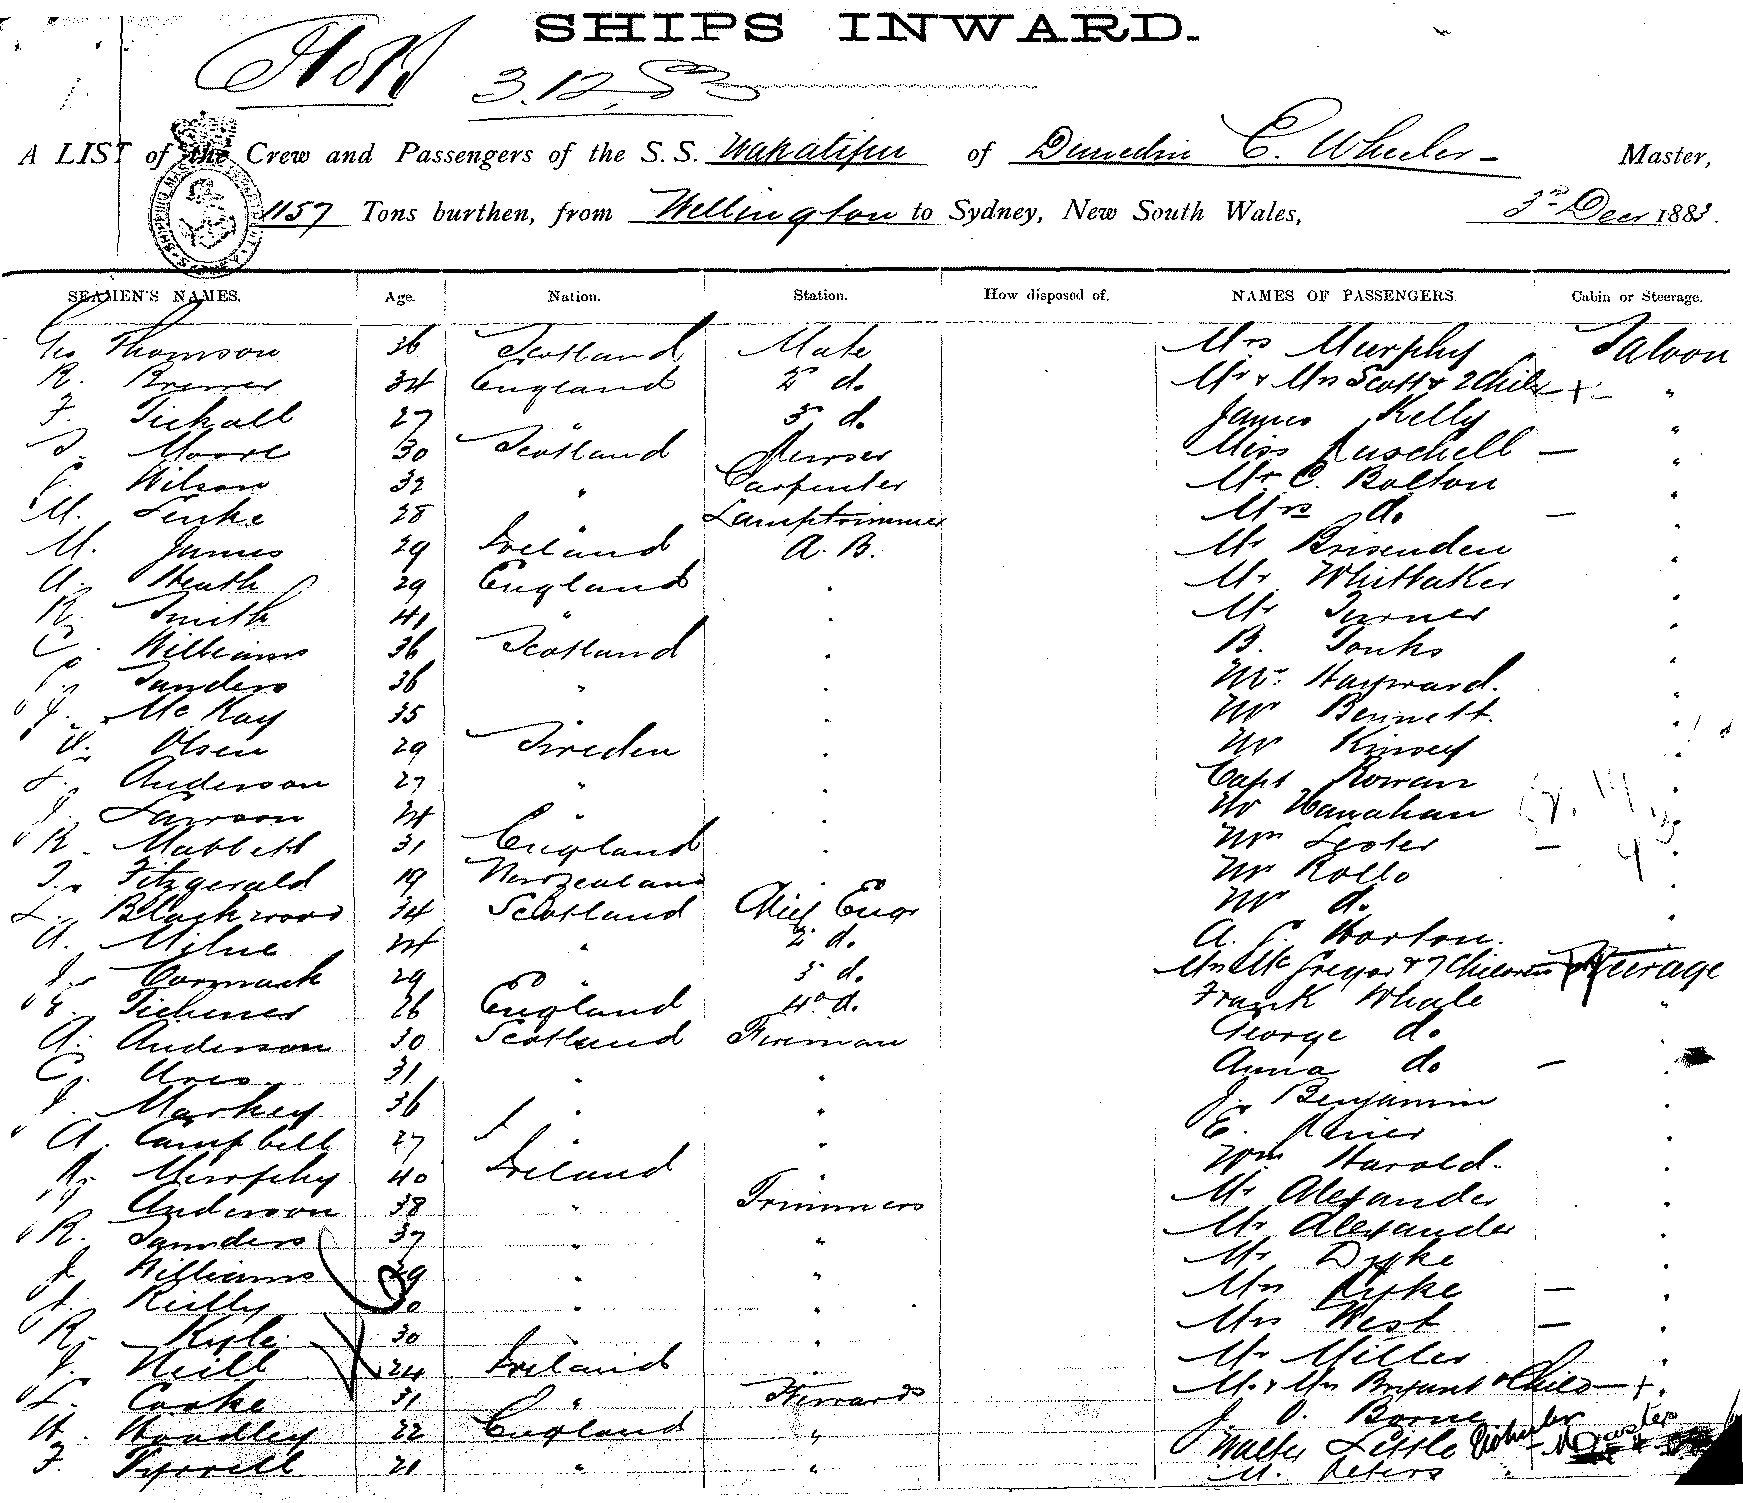 SHIPS INWARD.
3.12.83
A LIST of the Crew and Passengers of the S.S. Wakatipu of Dunedin C. Wheeler Master,
1157 Tons burthen, from Wellington to Sydney, New South Wales, 3rd Decr 1883.
SEAMEN'S NAMES. Age. Nation. Station. How disposed of. NAMES OF PASSENGERS. Cabin or Steerage.
Geo Thomson 36 Scotland Mate Mrs Murphy Saloon
R. Bremer 34 England 2 do. Mr & Mrs Scott & 2 Childn + "
F. Tickall 27 " 3 do. James Kelly "
Moore 30 Scotland Miss Ruschell — "
Wilson 32 " Carpenter Mr C. Bolton "
M. 28 " Lamptrimmer Mrs do. — "
M. James 29 Ireland A. B. Mr Brisenden "
A. Heath 29 England " Mr Whittaker "
R. Smith 41 " " Mr Turner "
C. Williams 36 Scotland " B. Tonks "
Sanders 36 " " Mr. Hayward. "
J. McKay 35 " " Mr Bennett. "
Olsen 29 Sweden " Mr Kinsey "
Anderson 27 " " Capt Rowan "
J. Lawson 24 " " Mr Hanahan "
R. Mabbett 31 England " Mrs Lester — "
Fitzgerald 19 New Zealand " Mr Rollo "
L. Blackwood 34 Scotland Chief Engr Mr do. "
A. Milne 24 " 2 do. A. C. Horton. "
J. Cormack 29 " 3 do. Mrs McGregor & 7 Children Steerage
E. Tichener 26 England 4 do. Frank Whale "
A. Anderson 30 Scotland Fireman George do. "
G. 31 " " Anna do —
J. Markey 36 " " J. Benjamin "
A. Campbell 27 " " E. "
Murphy 40 Ireland " Wm Harold. "
Anderson 38 " Trimmers Mr Alexander "
R. Saunders 37 " " Mr Alexander "
J. Williams 29 " " Mr Dyke "
Reilly 30 " " Mrs Dyke — "
R. Kyle 30 " " Mrs West — "
J. Neill 24 Ireland " Mr Miller "
L. Cooke 31 " Mr & Mrs Bryant & Child — + "
H. Hoadley 22 England " J. O. Borne
F. Tyrrell 21 " " Walter Little
Peters
C Wheeler
Master